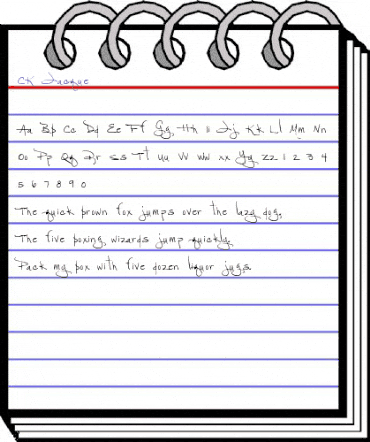 CK Jacque
Aa Bb Cc Dd Ee Ff Gg Hh Ii Jj Kk Ll Mm Nn
Oo Pp Qq Rr Ss Tt Uu Vv Ww Xx Yy Zz 1 2 3 4
5 6 7 8 9 0
The quick brown fox jumps over the lazy dog.
The five boxing wizards jump quickly.
Pack my box with five dozen liquor jugs.